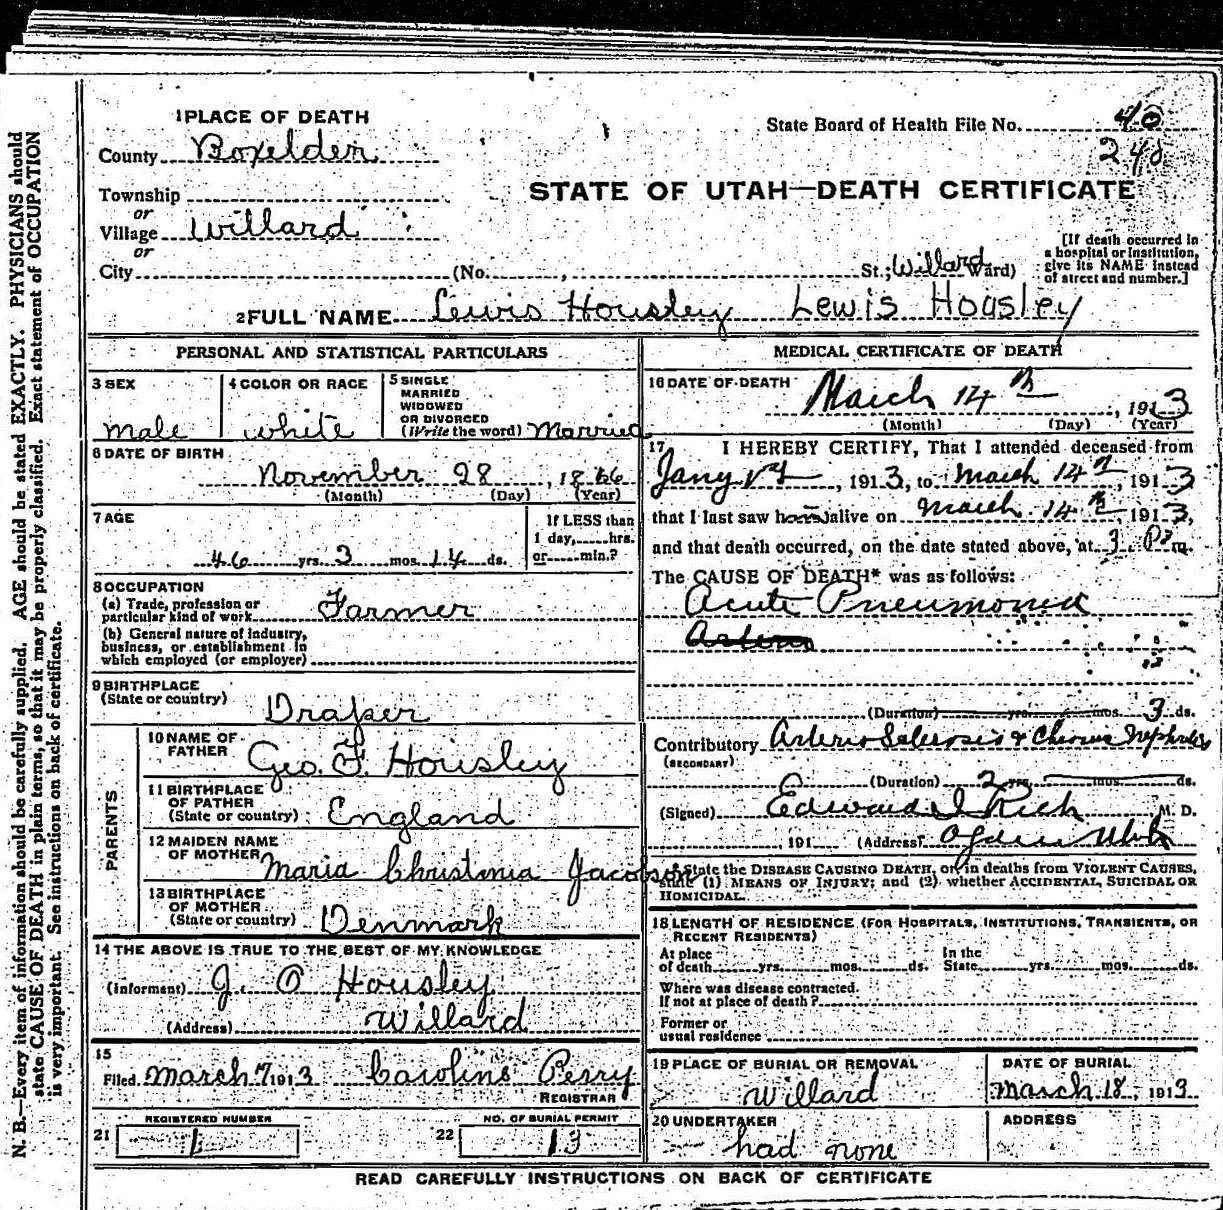 1 PLACE OF DEATH
County Boxelder
Township
or
Village Willard
or
City (No. , St.; Willard Ward)
State Board of Health File No. 40
248
STATE OF UTAH—DEATH CERTIFICATE
[If death occurred in
a hospital or institution,
give its NAME instead
of street and number.]
2 FULL NAME Lewis Housley Lewis Housley
PERSONAL AND STATISTICAL PARTICULARS
3 SEX
male
4 COLOR OR RACE
white
5 SINGLE
MARRIED
WIDOWED
OR DIVORCED
(Write the word) Married
6 DATE OF BIRTH
November 28, 1866
(Month) (Day) (Year)
7 AGE
46 yrs. 3 mos. 14 ds.
If LESS than
1 day, hrs.
or min.?
8 OCCUPATION
(a) Trade, profession or
particular kind of work Farmer
(b) General nature of industry,
business, or establishment in
which employed (or employer)
9 BIRTHPLACE
(State or country)
Draper
PARENTS
10 NAME OF
FATHER Geo. F. Housley
11 BIRTHPLACE
OF FATHER
(State or country) England
12 MAIDEN NAME
OF MOTHER Maria Christinia Jacobson
13 BIRTHPLACE
OF MOTHER
(State or country) Denmark
14 THE ABOVE IS TRUE TO THE BEST OF MY KNOWLEDGE
(Informant) J. O Housley
(Address) Willard
15
Filed March 7 1913 Caroline Perry
REGISTRAR
REGISTERED NUMBER
21
NO. OF BURIAL PERMIT
22 13
MEDICAL CERTIFICATE OF DEATH
16 DATE OF DEATH
March 14th, 1913
(Month) (Day) (Year)
17 I HEREBY CERTIFY, That I attended deceased from
Jany 1st, 1913, to March 14th, 1913
that I last saw him alive on March 14th, 1913,
and that death occurred, on the date stated above, at 3 P m.
The CAUSE OF DEATH* was as follows:
Acute Pneumonia
(Duration) yrs. mos. 3 ds.
Contributory Arterio Sclerosis & Chronic Nephritis
(SECONDARY)
(Duration) 2 yrs. mos. ds.
(Signed) Edward I Rich M. D.
, 191 (Address) Ogden Utah
* State the DISEASE CAUSING DEATH, or, in deaths from VIOLENT CAUSES,
state (1) MEANS OF INJURY; and (2) whether ACCIDENTAL, SUICIDAL OR
HOMICIDAL.
18 LENGTH OF RESIDENCE (FOR HOSPITALS, INSTITUTIONS, TRANSIENTS, OR
RECENT RESIDENTS)
At place
of death yrs. mos. ds.
In the
State yrs. mos. ds.
Where was disease contracted.
If not at place of death?
Former or
usual residence
19 PLACE OF BURIAL OR REMOVAL
Willard
DATE OF BURIAL
March 18, 1913
20 UNDERTAKER
had none
ADDRESS
READ CAREFULLY INSTRUCTIONS ON BACK OF CERTIFICATE
N. B.—Every item of information should be carefully supplied. AGE should be stated EXACTLY. PHYSICIANS should
state CAUSE OF DEATH in plain terms, so that it may be properly classified. Exact statement of OCCUPATION
is very important. See instructions on back of certificate.